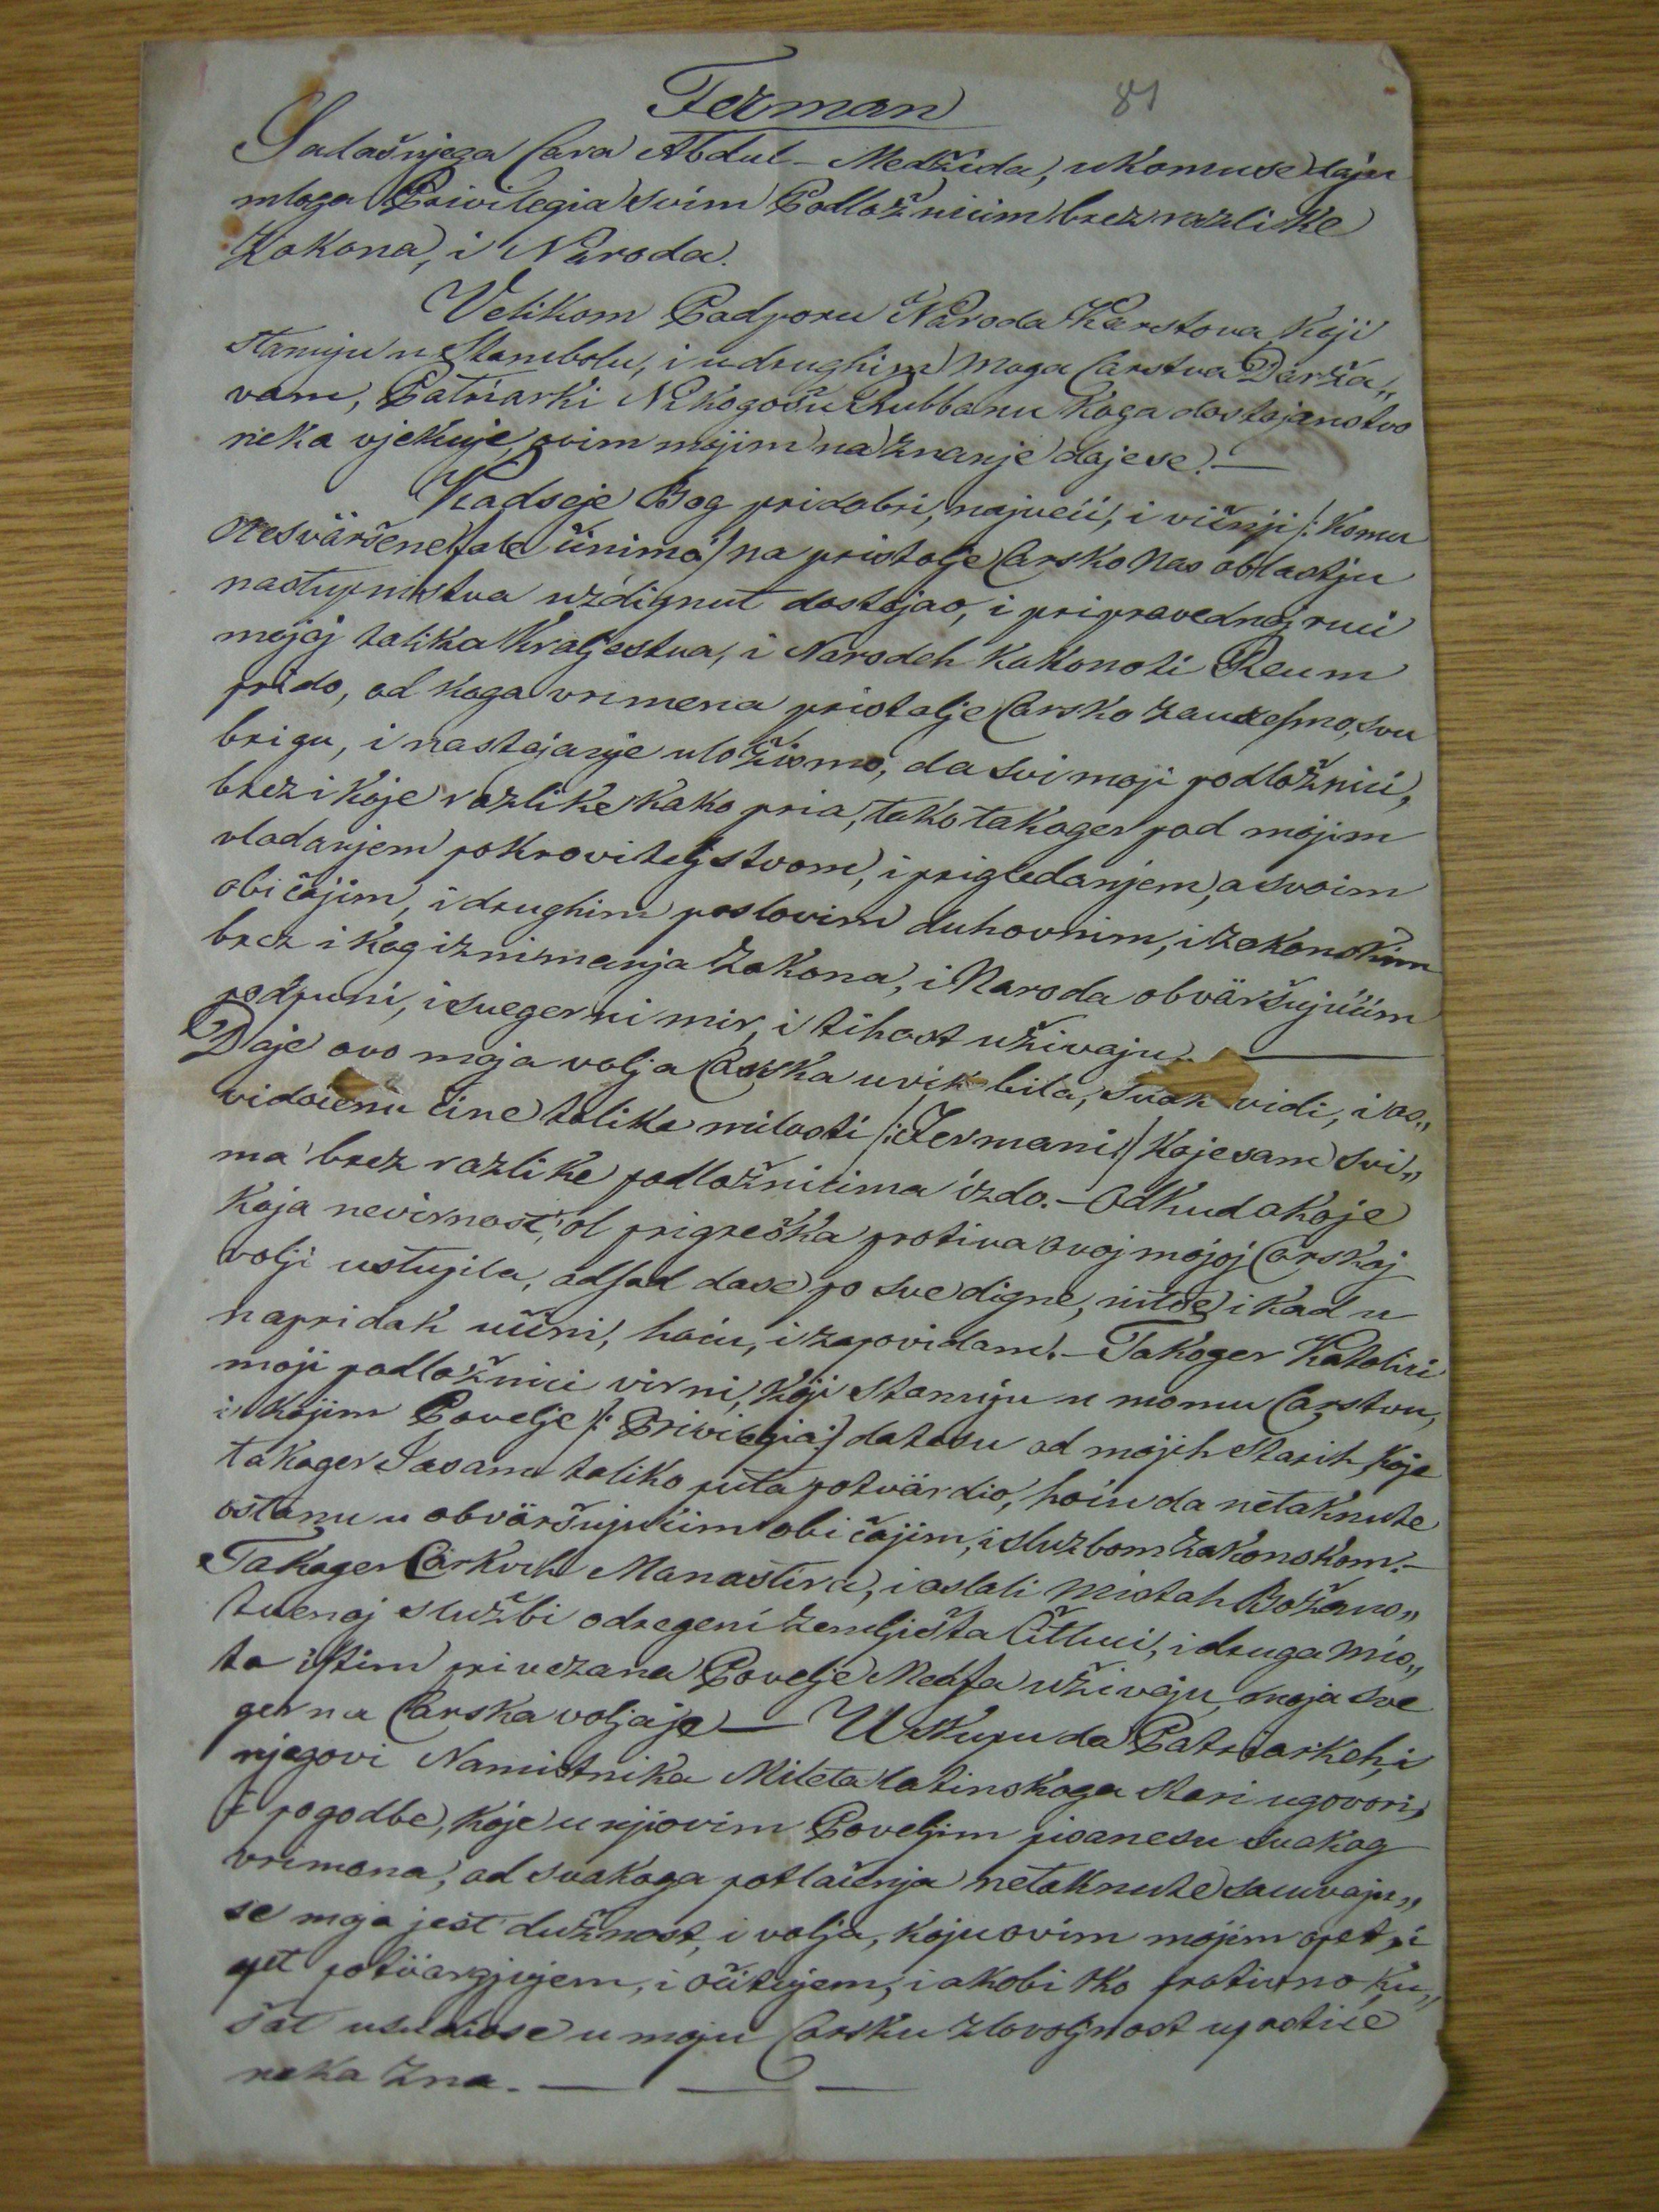 Ferman
81
Sadašnjega Cara Abdul-Medžida, ukomuse daju
mloga Privilegia svim Podložnicim brez razlike
Zakona, i Naroda.
Velikom Podporu Naroda Karstova Koji
stanuju u Stambolu, i u drughim moga Carstva Darža„
vam, Patriarki Nikogošu Rubbanu Koga dostojanstvo
neka vjekuje, ovim mojim na znanje dajese. —
Kadseje Bog pridobri, najveći, i višnji /: Komu
nesvaršene fale činimo / na pristolje Carsko Nas oblastju
nastupnistva uzdignut dostojao, i pripravednoj ruci
mojoj tolika Kraljestva, i Narodeh kakonoti Reum
prido, od koga vrimena pristolje Carsko zauzesmo, svu
brigu, i nastojanje uložismo, da svi moji podložnici,
brez ikoje razlike kako pria, tako takoger pod mojim
vladanjem pokroviteljstvom, i prigledanjem, a svoim
običajim, i drughim poslovim duhovnim, i zakonskim
brez ikog iznimanja Zakona, i Naroda obvaršujućim
podpuni, i svegerni mir, i tihost uživaju. —
Daje ovo moja volja Carska uvik bila, svak vidi, i os„
vidočenu čine tolike milosti /: Fermani / Kojesam svi„
ma brez razlike podložnicima izdo. — Odkud akoje
Koja nevirnost, ol prigreška protiva ovoj mojoj Carskoj
volji ustupila, odsad dase po sve digne, nitse ikad u
napridak učini, hoću, i zapovidam. — Takoger Katolici
moji podložnici virni, koji stanuju u momu Carstvu,
i kojim Povelje /: Privilegia :/ datesu od mojih Starih, Koje
takoger Jasam toliko puta potvardio, hoću da netaknute
ostanu u obvaršujućim običajim, i službom zakonskom. —
Takoger Carkvih Manastira, i ostali Mistah Božans„
tvenoj službi odregeni zemljišta Čitluci, i druga mis„
ta istim privezana Povelje Meafa uživaju, moja sve
gerna Carska voljaje — U skupu da Patriarkeh, i
njegovi Namistnika Mileta latinskoga stari ugovori,
i pogodbe, koje u njiovim Poveljim pisanesu svakog
vrimena, od svakoga potlačenja netaknute sacuvaju„
se moja jest dužnost, i volja, koju ovim mojim opet, i
opet potvargjujem, i očitujem, i akobi tko protivno ku„
šat usudiose u moju Carsku zlovoljnost upastiće
neka zna. — — —